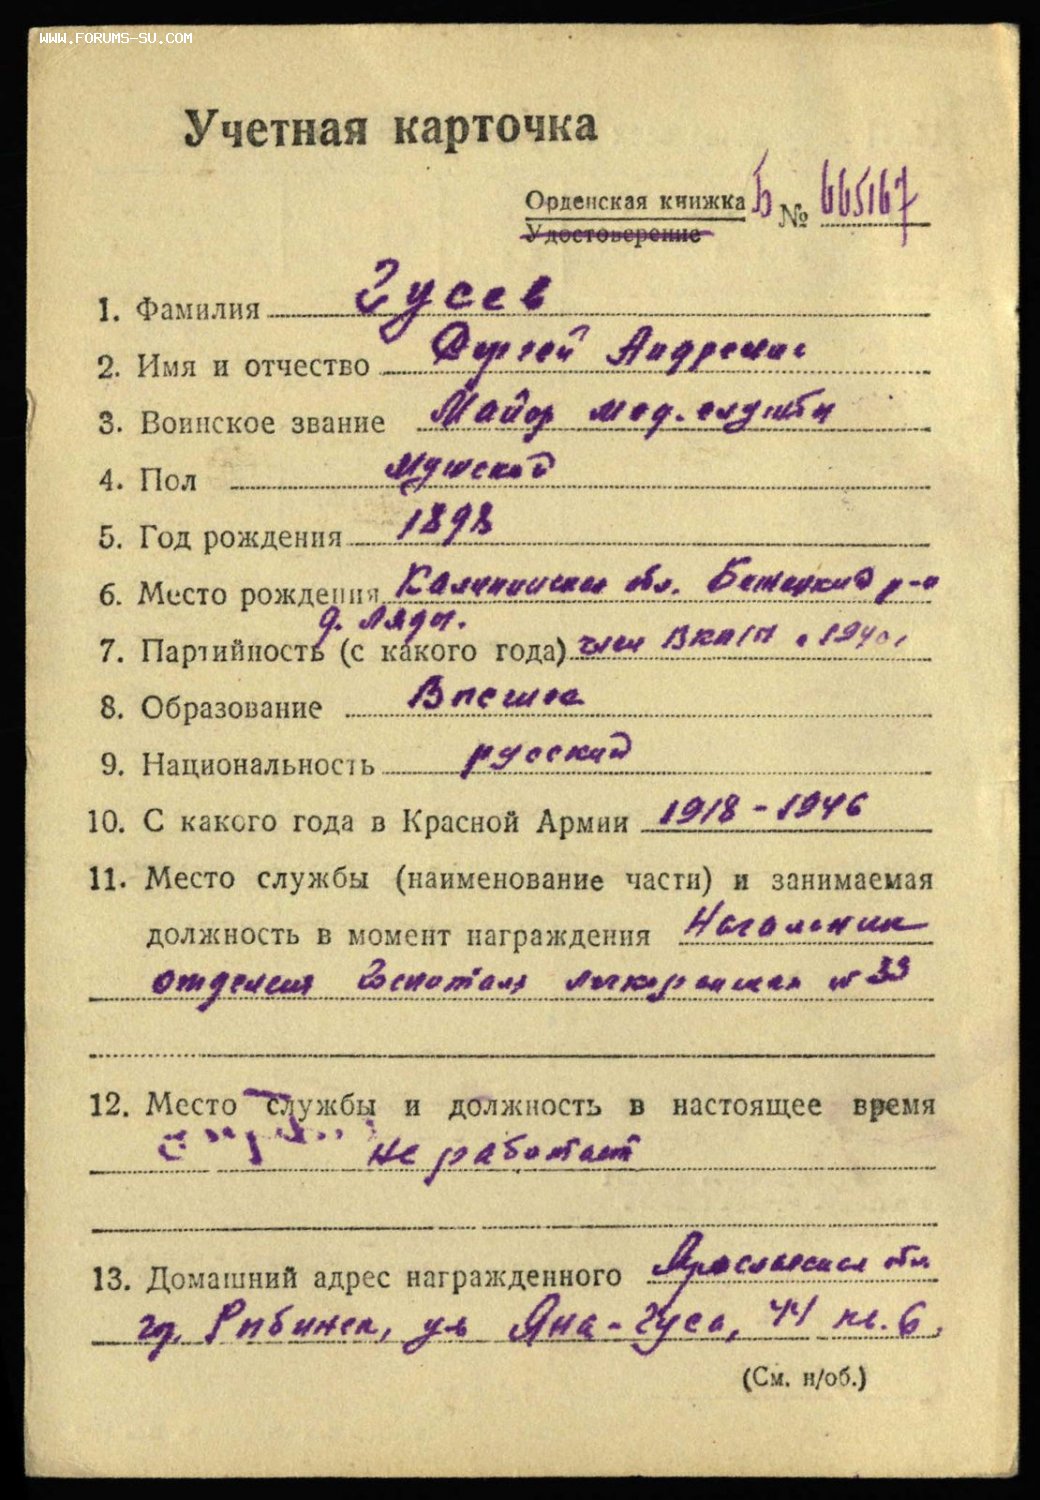 WWW.FORUMS-SU.COM
Учетная карточка
Орденская книжка Б № 665167
Удостоверение
1. Фамилия Гусев
2. Имя и отчество Сергей Андреевич
3. Воинское звание Майор мед. службы
4. Пол мужской
5. Год рождения 1898
6. Место рождения Калининская обл. Бежецкий р-н
д. Ляды.
7. Партийность (с какого года) член ВКП/б с 1940г
8. Образование Высшее
9. Национальность русский
10. С какого года в Красной Армии 1918-1946
11. Место службы (наименование части) и занимаемая
должность в момент награждения Начальник
отделения Госпиталя легкораненых № 33
12. Место службы и должность в настоящее время
не работает
13. Домашний адрес награжденного Ярославская обл
гор. Рыбинск, ул Яна-Гуса, 44 кв. 6.
(См. н/об.)